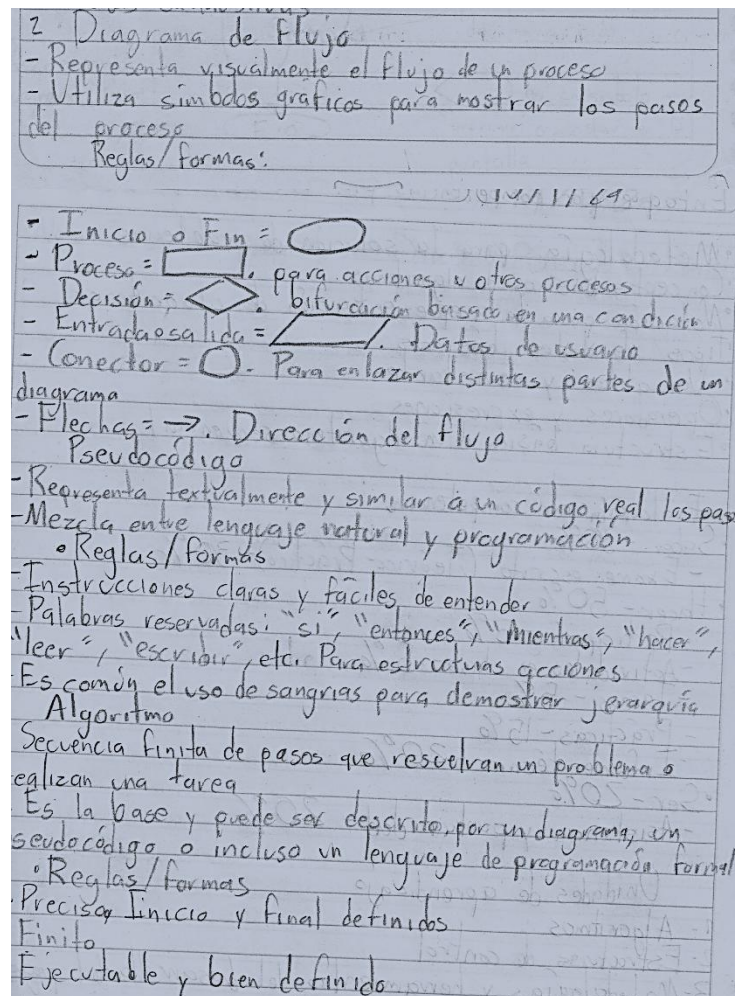 2 Diagrama de Flujo
- Representa visualmente el flujo de un proceso
- Utiliza simbolos gráficos para mostrar los pasos
del proceso
Reglas/formas:
- Inicio o Fin =
- Proceso = . para acciones u otros procesos
- Decisión = . bifurcación basado en una condición
- Entrada o salida = . Datos de usuario
- Conector = . Para enlazar distintas partes de un
diagrama
- Flechas = →. Dirección del flujo
Pseudocódigo
- Representa textualmente y similar a un código real los pas
- Mezcla entre lenguaje natural y programación
• Reglas/formas
- Instrucciones claras y fáciles de entender
- Palabras reservadas: "si", "entonces", "mientras", "hacer",
"leer", "escribir", etc. Para estructuras acciones
- Es común el uso de sangrias para demostrar jerarquía
Algoritmo
Secuencia finita de pasos que resuelvan un problema o
ealizan una tarea
Es la base y puede ser descrito por un diagrama, un
seudocódigo o incluso un lenguaje de programación formal
• Reglas/formas
Preciso, Inicio y final definidos
Finito
Ejecutable y bien definido